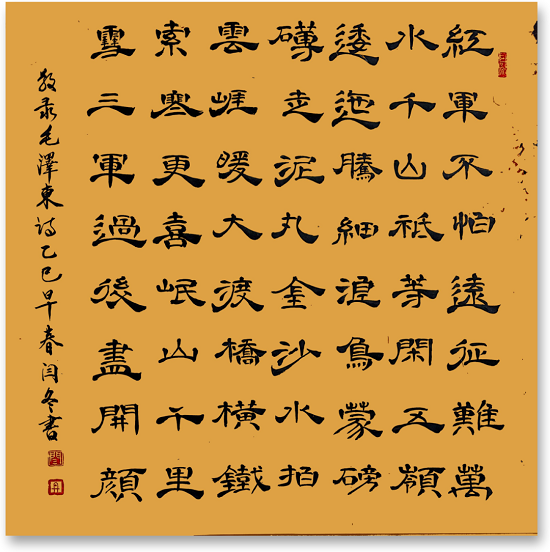 紅軍不怕遠征難萬
水千山衹等閑五嶺
逶迤騰細浪烏蒙磅
礴走泥丸金沙水拍
雲崖暖大渡橋橫鐵
索寒更喜岷山千里
雪三軍過後盡開顔
敬录毛澤東诗乙巳早春闫冬書